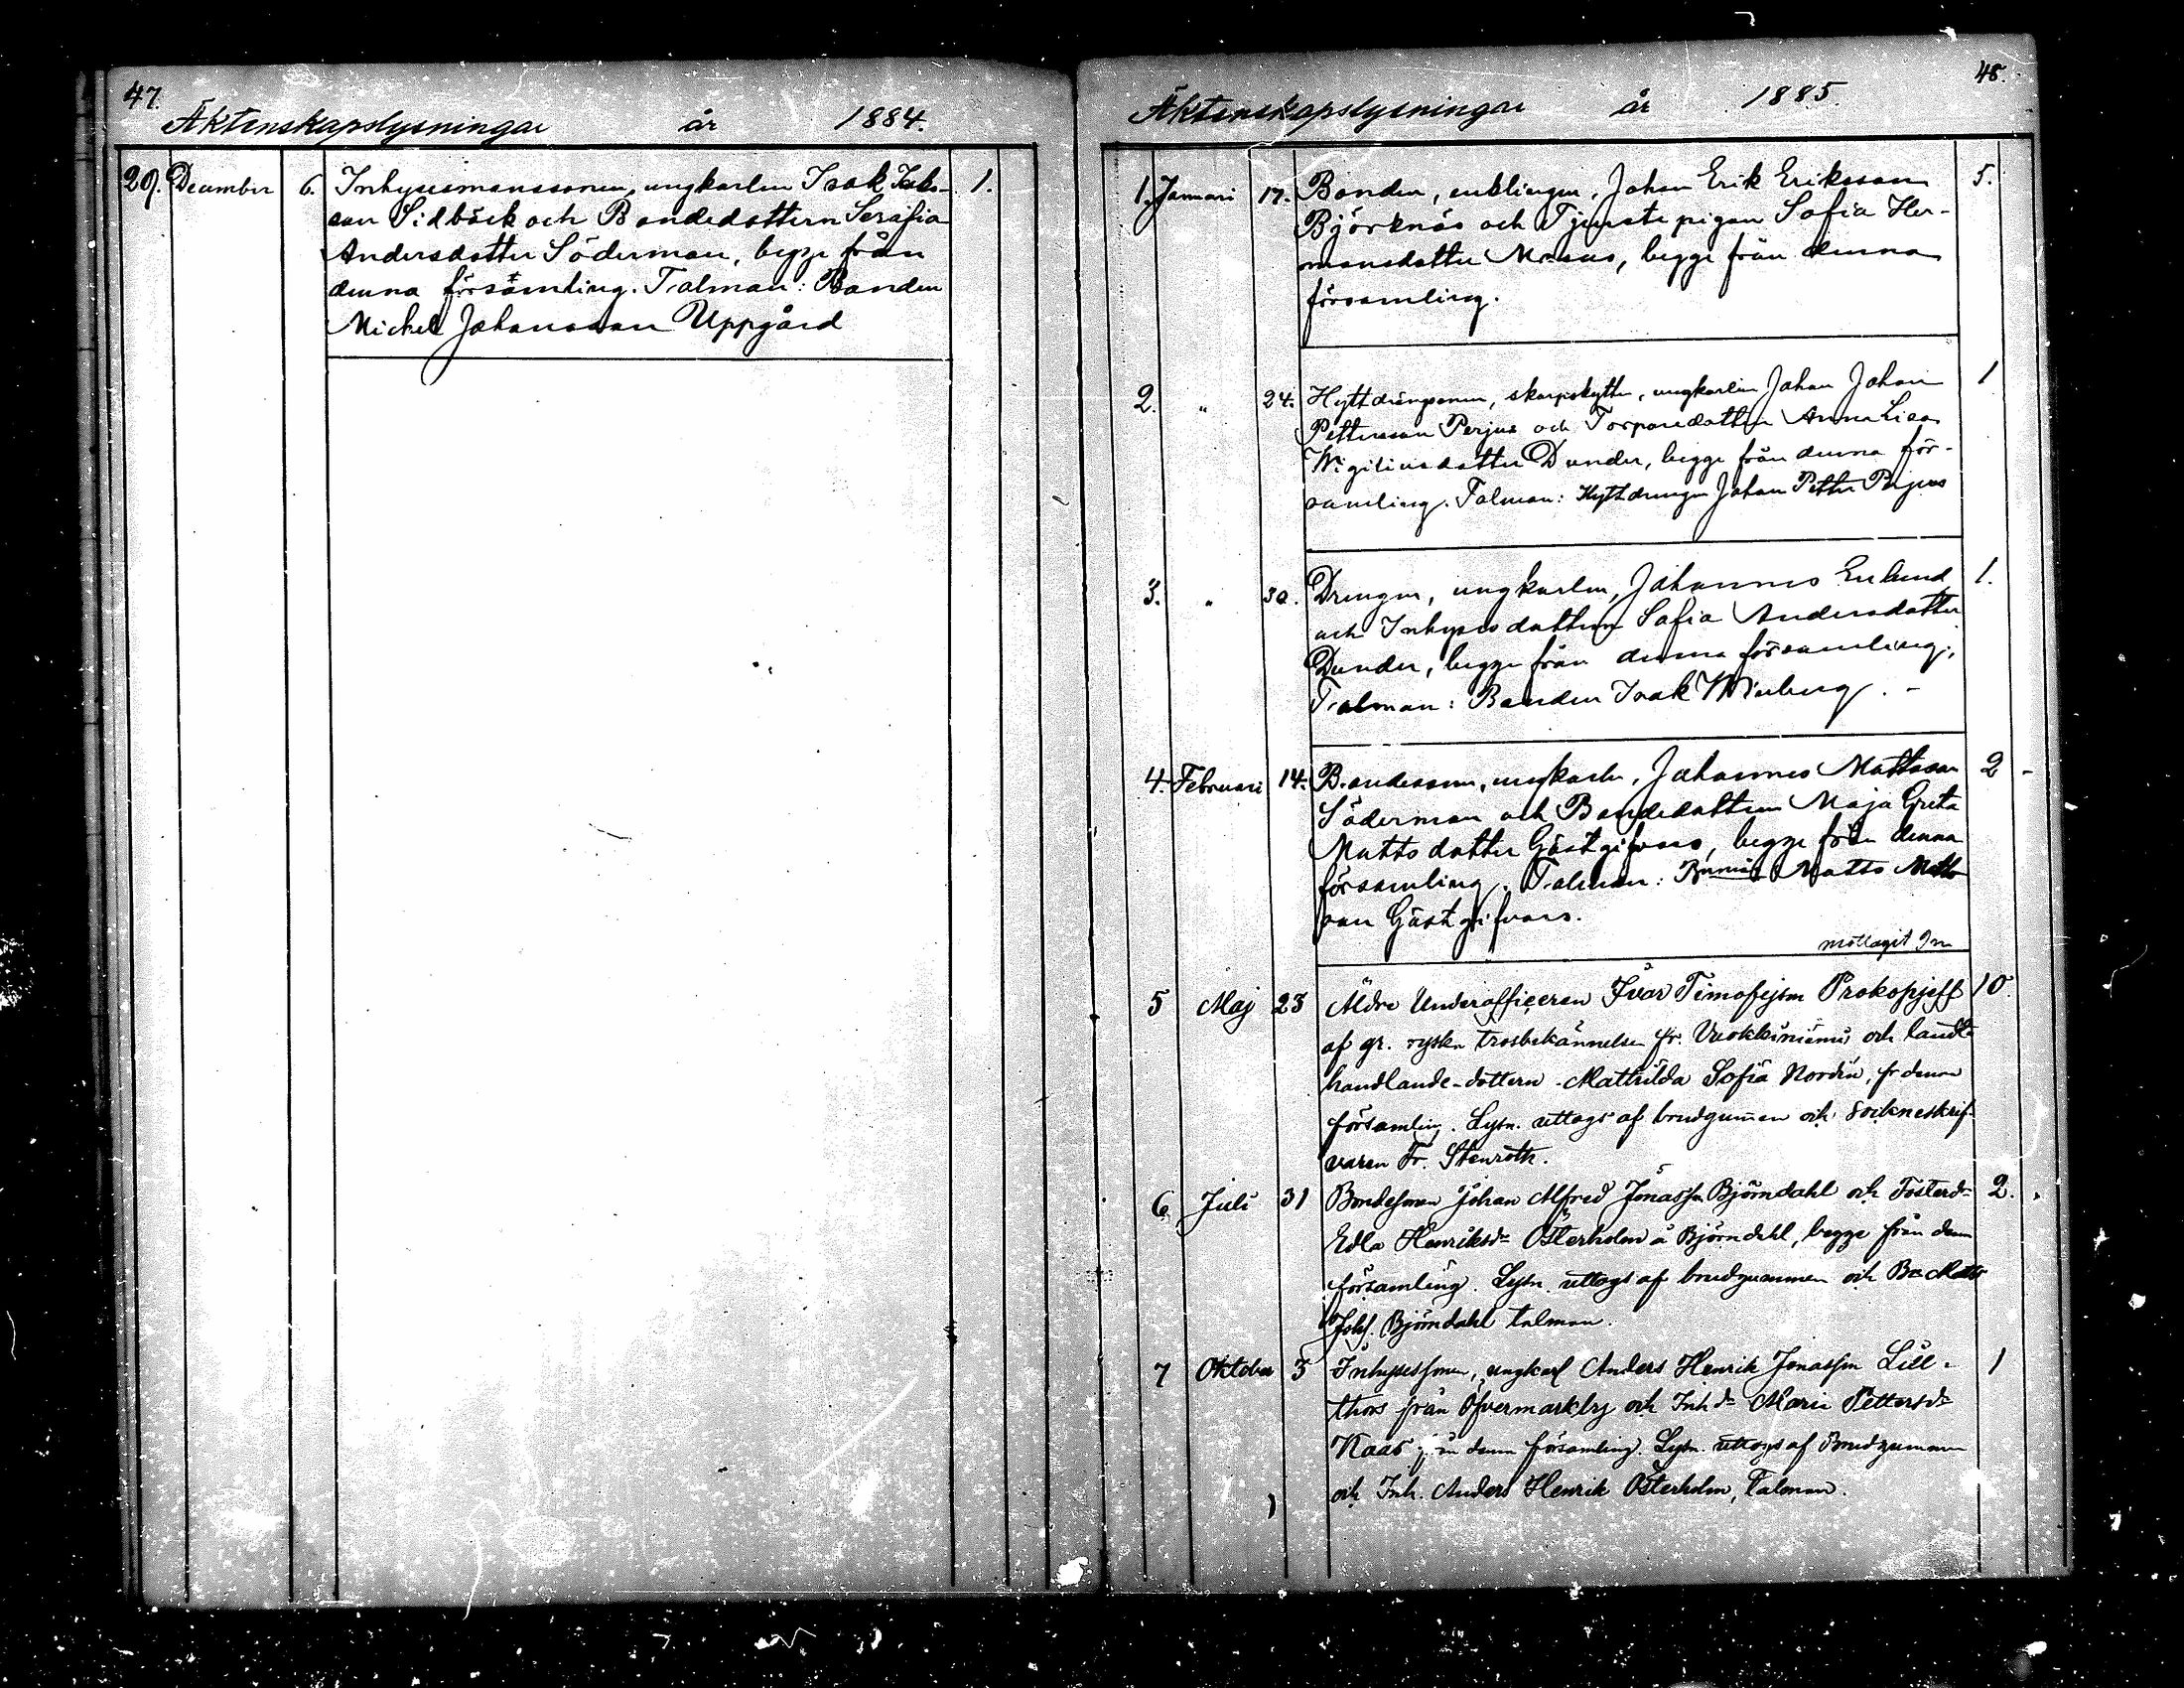 47.
Äktenskapslysningar år 1884.
29. December 6. Inhysesmanssonen, ungkarlen Isak Isaks- 1.
son Sidbäck och Bondedottern Serafia
Andersdotter Söderman, begge från
denna församling. Talman: Bonden
Michel Johansson Uppgård
48.
Äktenskapslysningar år 1885.
1. Januari 17. Bonden, enklingen, Johan Erik Eriksson 5.
Björknäs och Tjenstepigan Sofia Her-
mansdotter Masus, begge från denna
församling.
2. " 24. Hyttdrängsonen, skarpskytten, ungkarlen Johan Johan 1
Pettersson Perjus och Torparedottern Anna Lisa
Wigiliusdotter Dunder, begge från denna för-
samling. Talman: Hyttdrengen Johan Petter Perjus
3. " 30. Drengen, ungkarlen, Johannes Enlund 1.
och Inhysesdottern Sofia Andersdotter
Dunder, begge från denna församling,
Talman: Bonden Isak Wiberg. -
4. Februari 14. Bondesonen, ungkarlen, Johannes Mattsson 2 -
Söderman och Bondedottern Maja Greta
Mattsdotter Gästgifvars, begge från denna
församling. Talman: Matts Matts
son Gästgifvars.
mottagit
5 Maj 23 Äldre Underofficeren Ivar Timofejson Prokopjeff 10.
af gr. ryska trosbekännelsen fr. Vuokkiniemi och landt
handlande-dottern Mathilda Sofia Nordin, fr denna
församling. Lysn. uttogs af brudgummen och Sockneskrif-
varen Fr. Stenroth.
6 Juli 31 Bondesonen Johan Alfred Jonasson Björndahl och Fosterd: 2.
Edla Henriksdr Österholm å Björndahl, begge från denna
församling. Lysn. uttogs af brudgummen och Bn Matts
Johs. Björndahl talman.
7 Oktober 3 Inhysessonen, ungkarl Anders Henrik Jonasson Lill- 1
thors från Öfvermarkby och Inh dr Maria Pettersdr
Kaas från denna församling. Lysn. uttogs af Brudgummen
och Inh. Anders Henrik Österholm, Talman.